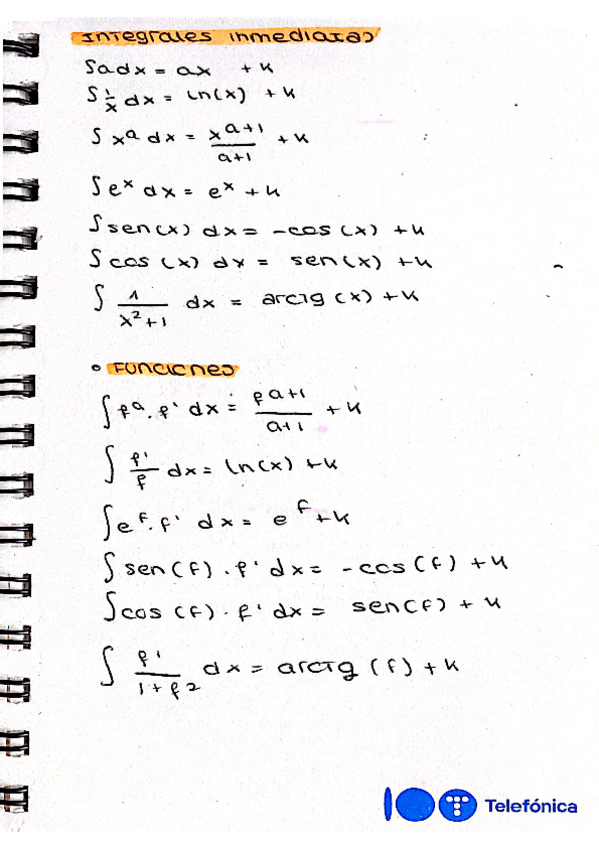 Integrales inmediatas
∫a dx = ax + k
∫ 1/x dx = ln(x) + k
∫ x^a dx = x^(a+1)/(a+1) + k
∫ e^x dx = e^x + k
∫ sen(x) dx = -cos(x) + k
∫ cos(x) dx = sen(x) + k
∫ 1/(x²+1) dx = arctg(x) + k
• Funciones
∫ f^a · f' dx = f^(a+1)/(a+1) + k
∫ f'/f dx = ln(x) + k
∫ e^f · f' dx = e^f + k
∫ sen(f) · f' dx = -cos(f) + k
∫ cos(f) · f' dx = sen(f) + k
∫ f'/(1+f²) dx = arctg(f) + k
100 Telefónica